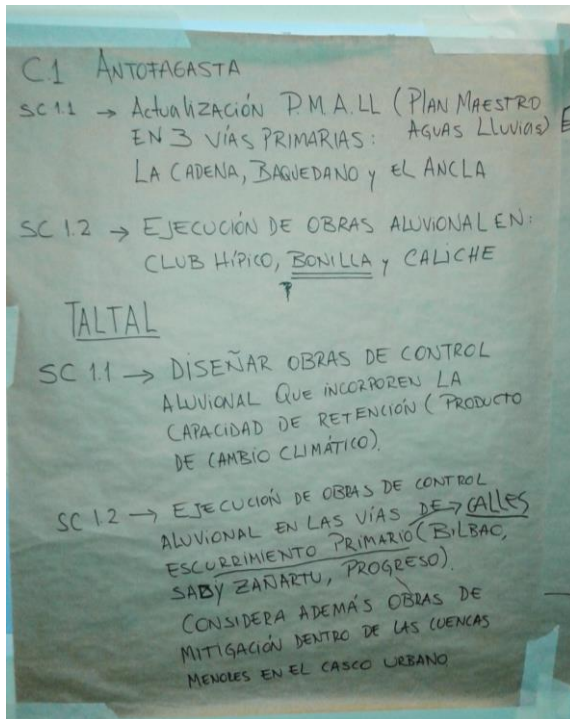 C.1 ANTOFAGASTA
SC 1.1 → Actualización P.M.A.LL (PLAN MAESTRO
EN 3 VÍAS PRIMARIAS: AGUAS LLuvias)
LA CADENA, BAQUEDANO y EL ANCLA
SC 1.2 → EJECUCIÓN DE OBRAS ALUVIONAL EN:
CLUB HÍPICO, BONILLA y CALICHE
TALTAL
SC 1.1 → DISEÑAR OBRAS DE CONTROL
ALUVIONAL QUE INCORPOREN LA
CAPACIDAD DE RETENCIÓN (PRODUCTO
DE CAMBIO CLIMÁTICO).
SC 1.2 → EJECUCIÓN DE OBRAS DE CONTROL
ALUVIONAL EN LAS VÍAS DE → CALLES
ESCURRIMIENTO PRIMARIO (BILBAO,
SADY ZAÑARTU, PROGRESO).
CONSIDERA ADEMÁS OBRAS DE
MITIGACIÓN DENTRO DE LAS CUENCAS
MENORES EN EL CASCO URBANO